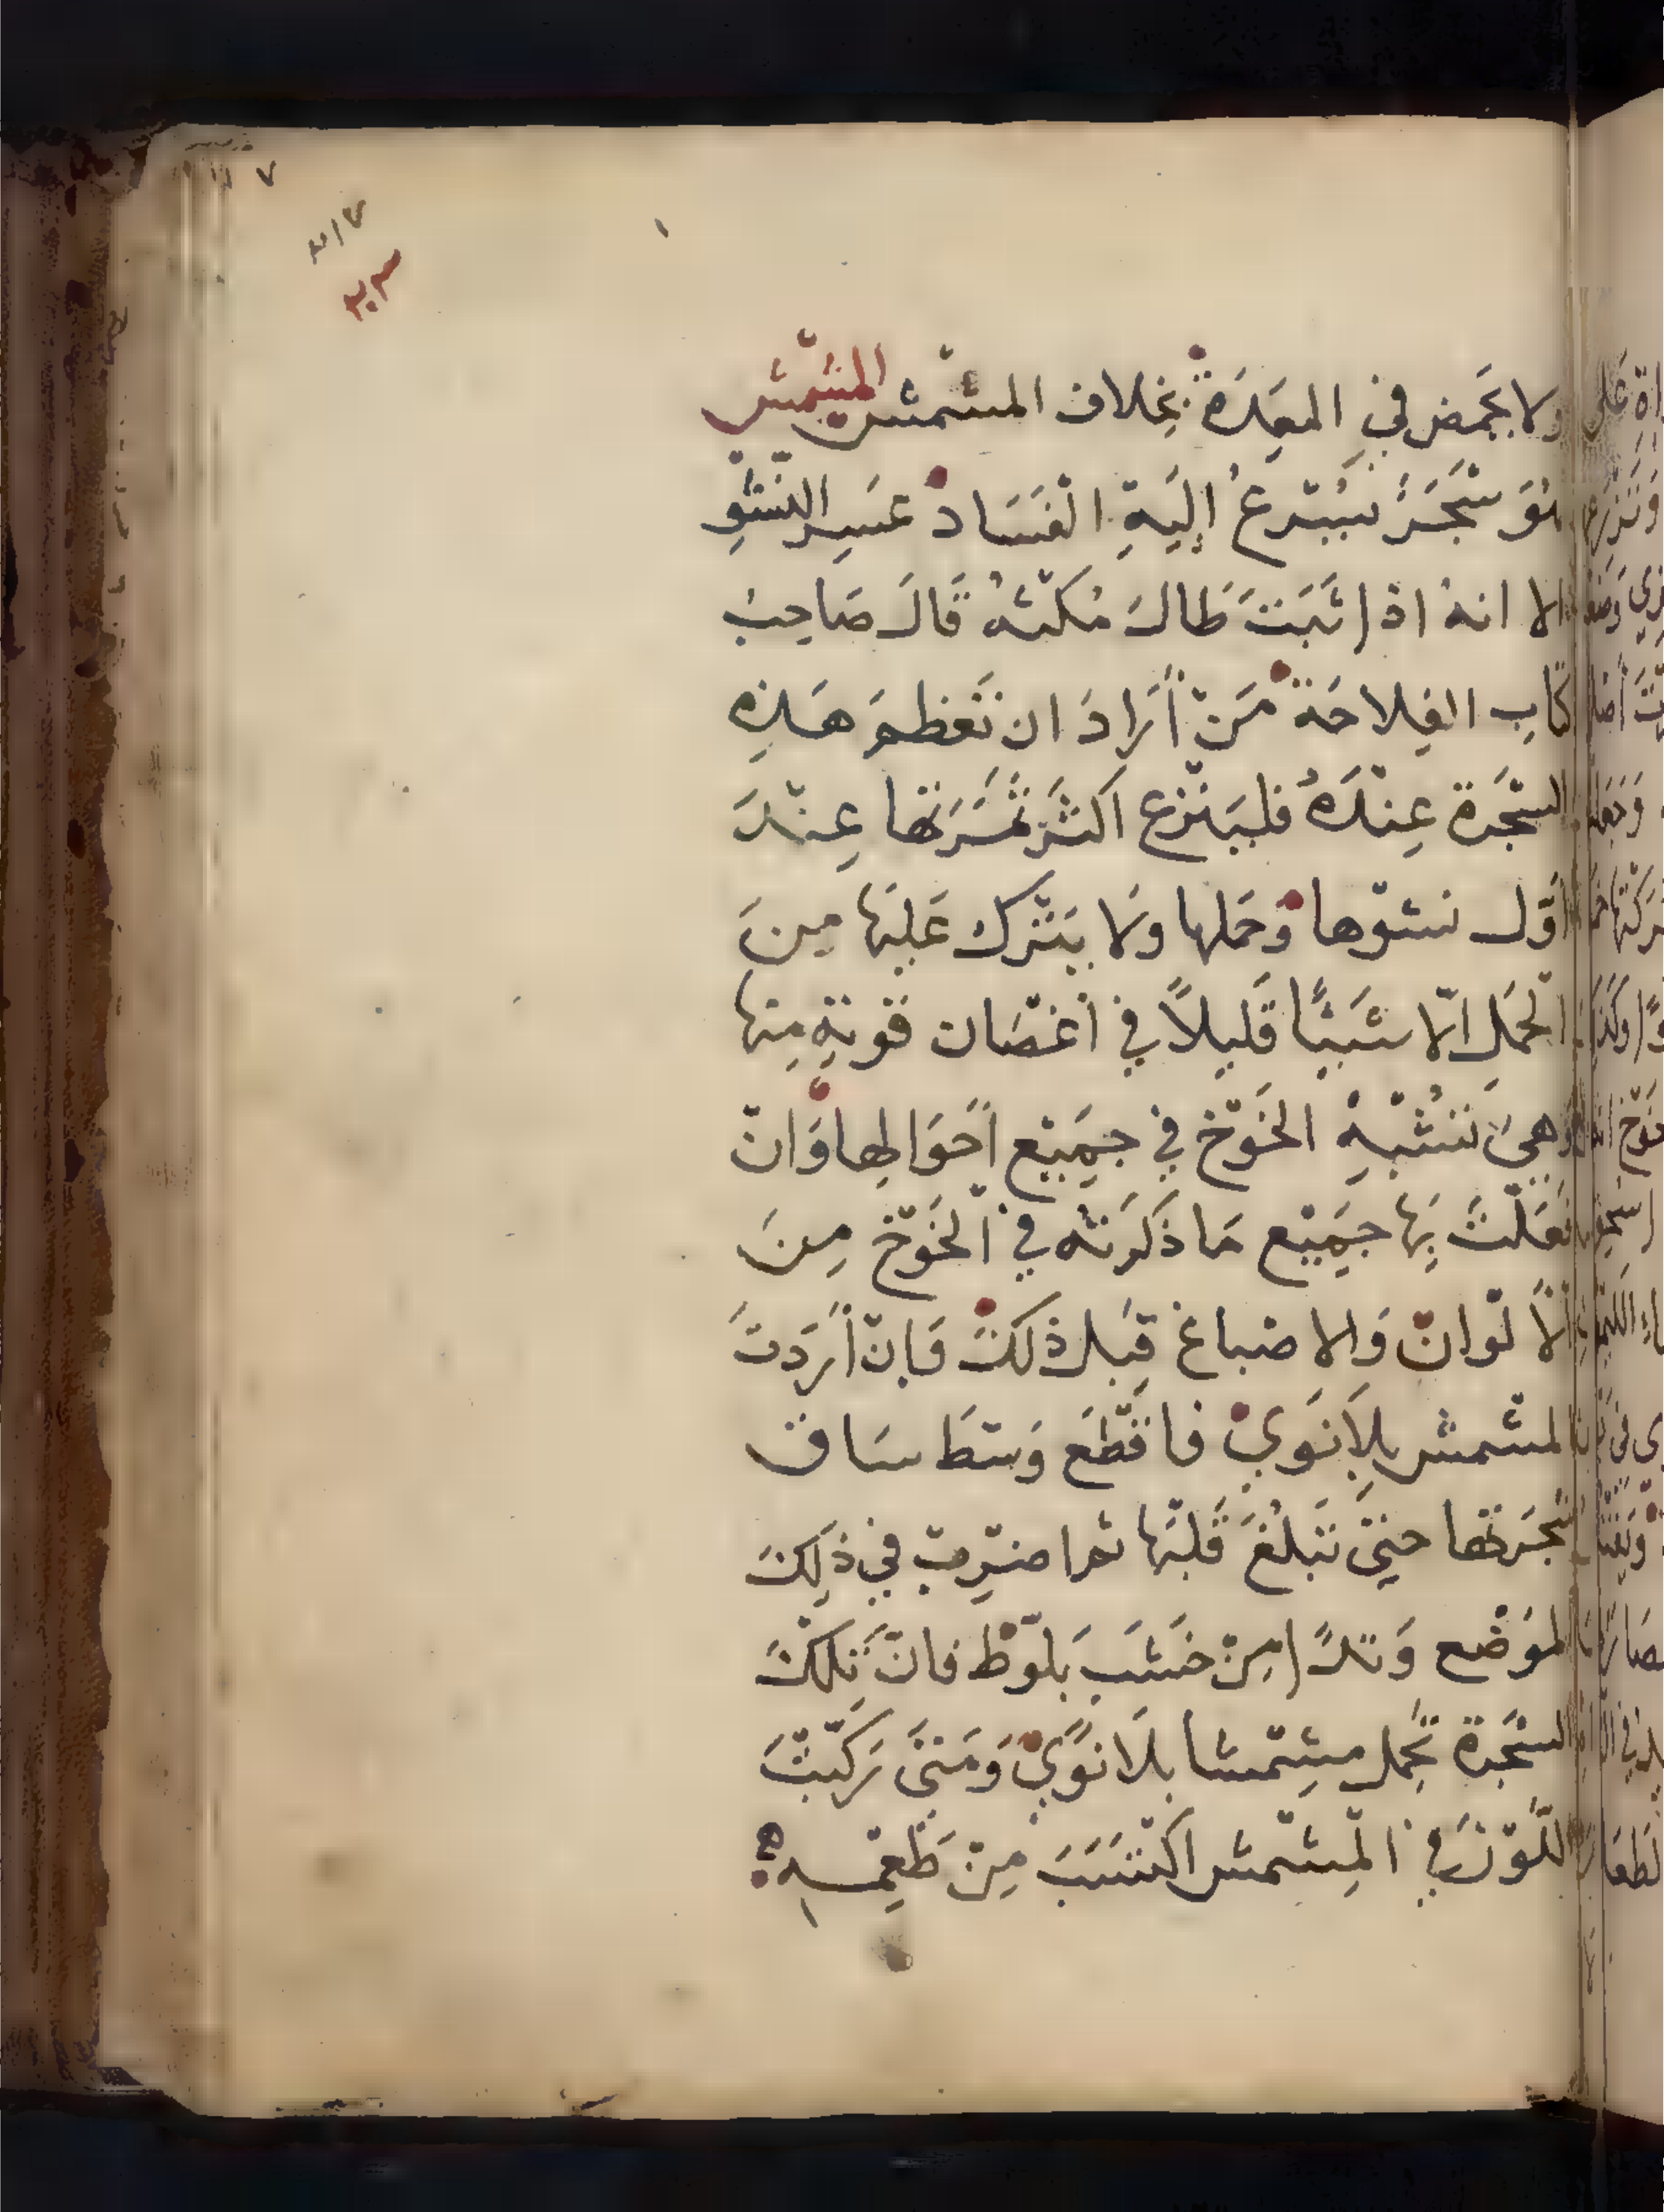 ٧
٢١٧
٢٣
ولا يَحَمض في المعِدَة بخِلاف المشمش المشمش
هُوَ شَجَرُ يُسْرعُ إليَهِ الفَسَاد عَسِر النشوِ
الا انهُ اذا ثَبَتَ طَالَ مُكثهُ قَالَ صَاحِبُ
كتاب الفِلاحَة مَنْ أرَادَ ان تَعَظمَ هَذِه
الشَجَرة عِنْدَهُ فليَنزع اكثر ثَمَرَتها عِنْدَ
اوّل نشوّها وَحَملها وَلا يَترك عَليَها مِنَ
الحَمَل الّا شَيئًا قَليلاً في أغصَان قَويَةٍ مِنها
وَهيَ تشُبِهُ الخَوْخ في جَميْع أحَوَالها وَانْ
فعَلتَ بِها جَميْع مَا ذكرَته في الخَوْخ مِنَ
الألوان وَالاصباغ قبل ذلكَ فَان أرَدتَ
المشمش بِلَا نَويْ فاقطَع وَسَطَ سَاق
شجَرَتها حتىَّ تَبلُغَ قَلبَها ثم اضرِب في ذلِكَ
الموَضع وَتدًا مِنْ خَشَبَ بَلوّط فانّ تِلكَ
الشجَرة تَحمِل مِشمشا بِلَا نَوًي وَمَتىَ رَكبّتَ
اللّوْز في المِشمش اكتسَبَ مِنْ طَعِمهِ